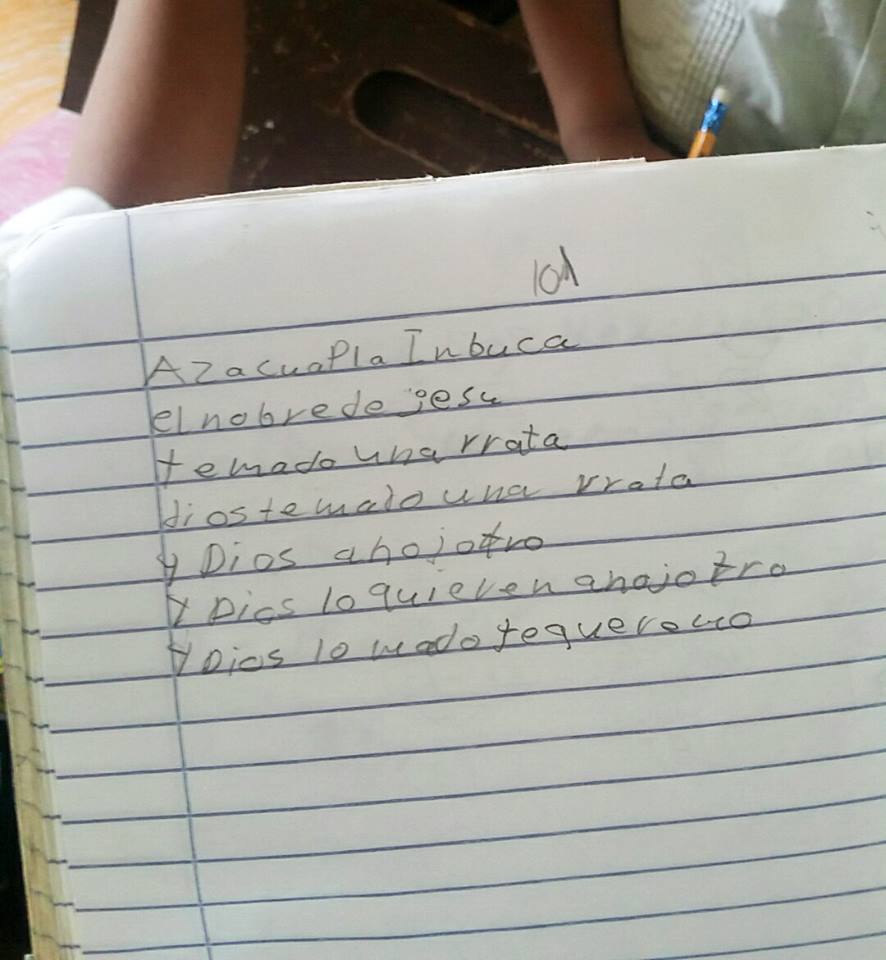 101
AzacuaPla Inbuca
el nobre de jesu
temado una rrata
dios temado una rrata
y Dios ahojotro
y Dios lo quieren ahajotro
y Dios lo mado tequeremo